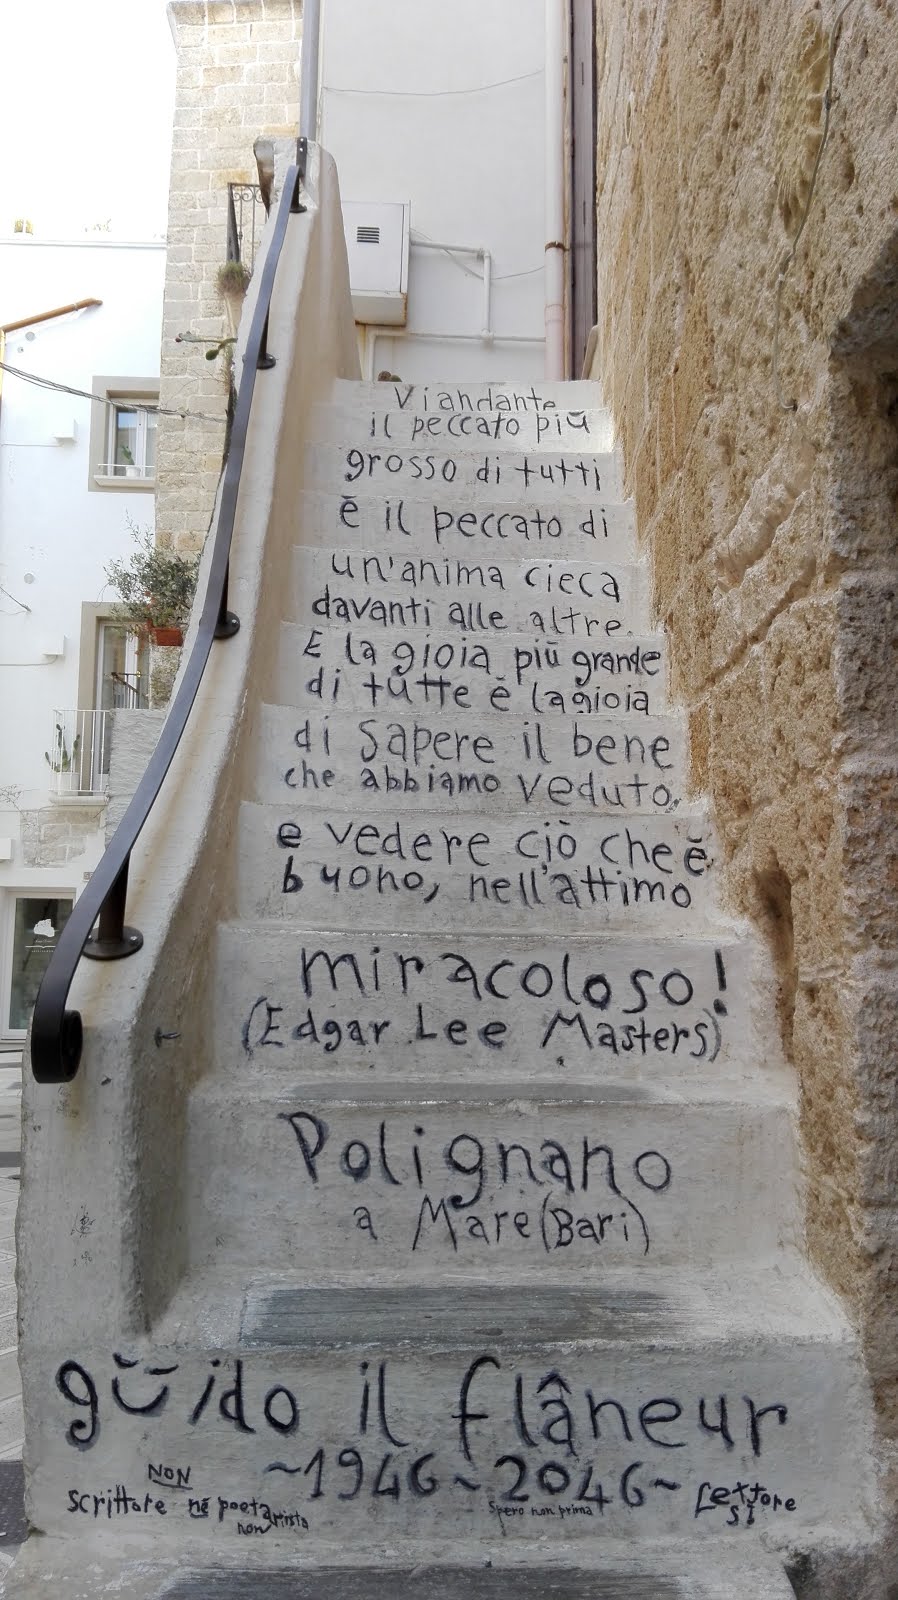 Viandante
il peccato più
grosso di tutti
è il peccato di
un'anima cieca
davanti alle altre.
E la gioia più grande
di tutte è la gioia
di sapere il bene
che abbiamo veduto,
e vedere ciò che è
buono, nell'attimo
miracoloso!
(Edgar Lee Masters)
Polignano
a Mare (Bari)
güido il flâneur
~1946~2046~
NON
scrittore né poeta
non
Spero non prima
Lettore
sì